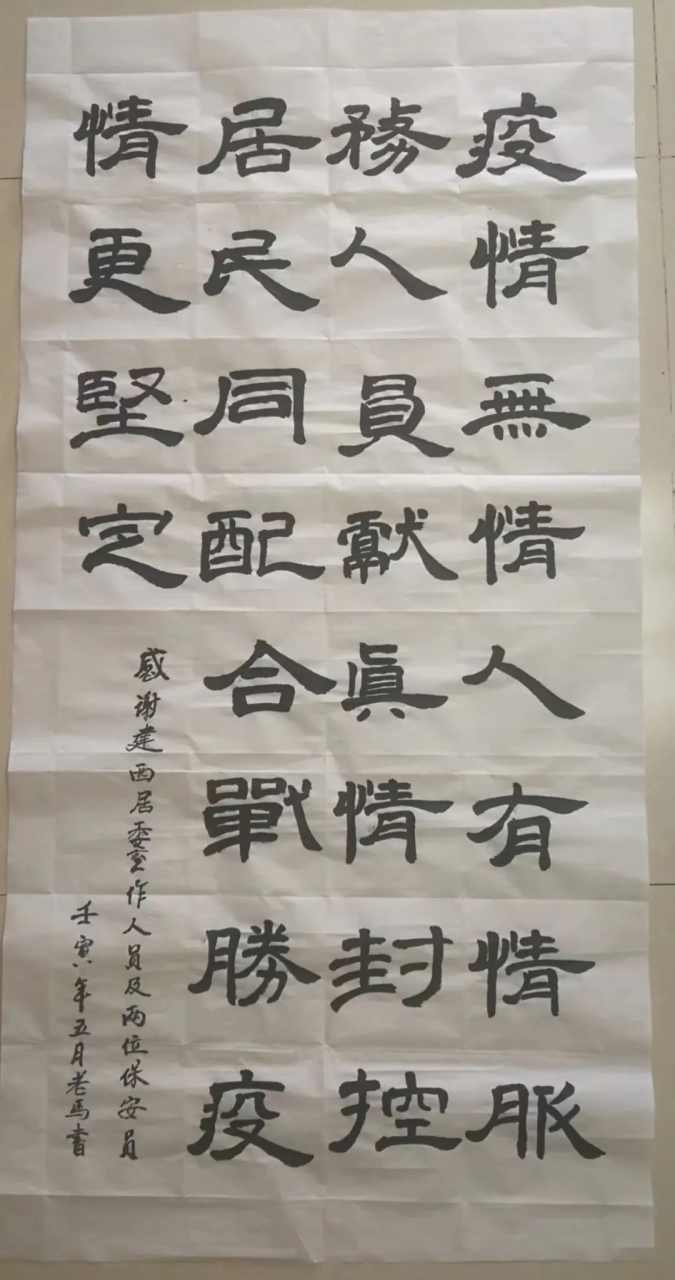 疫情無情人有情服
務人員獻真情封控
居民同配合戰勝疫
情更堅定
感谢建西居委工作人员及两位保安员
壬寅年五月老馬書